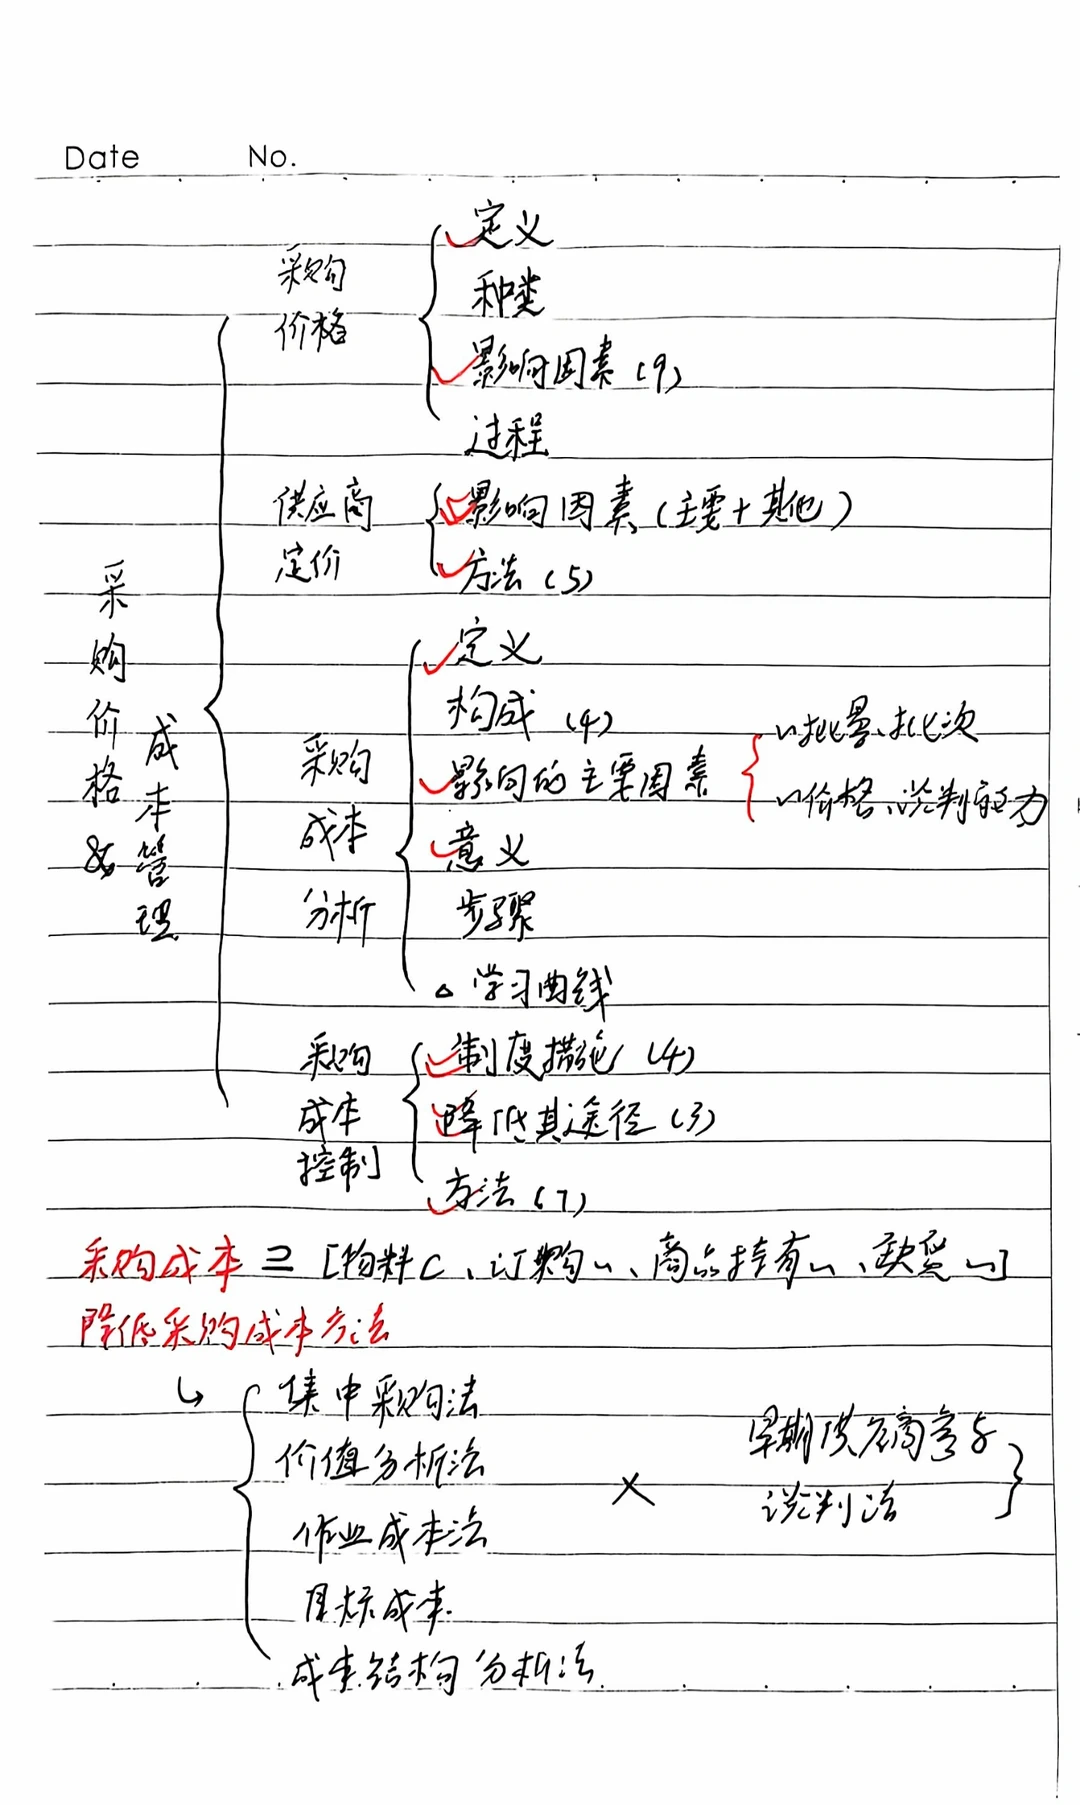 Date No.
采购价格&成本管理
采购价格
定义
种类
影响因素(9)
过程
供应商定价
影响因素(主要+其他)
方法(5)
采购成本分析
定义
构成(4)
影向的主要因素
批量、批次
价格、谈判能力
意义
步骤
△学习曲线
采购成本控制
制度措施(4)
降低其途径(3)
方法(7)
采购成本 = [物料C、订购〃、商品持有〃、缺货〃]
降低采购成本方法
↳ 集中采购法
价值分析法
作业成本法
目标成本.
成本结构分析法
×
早期供应商参与
谈判法